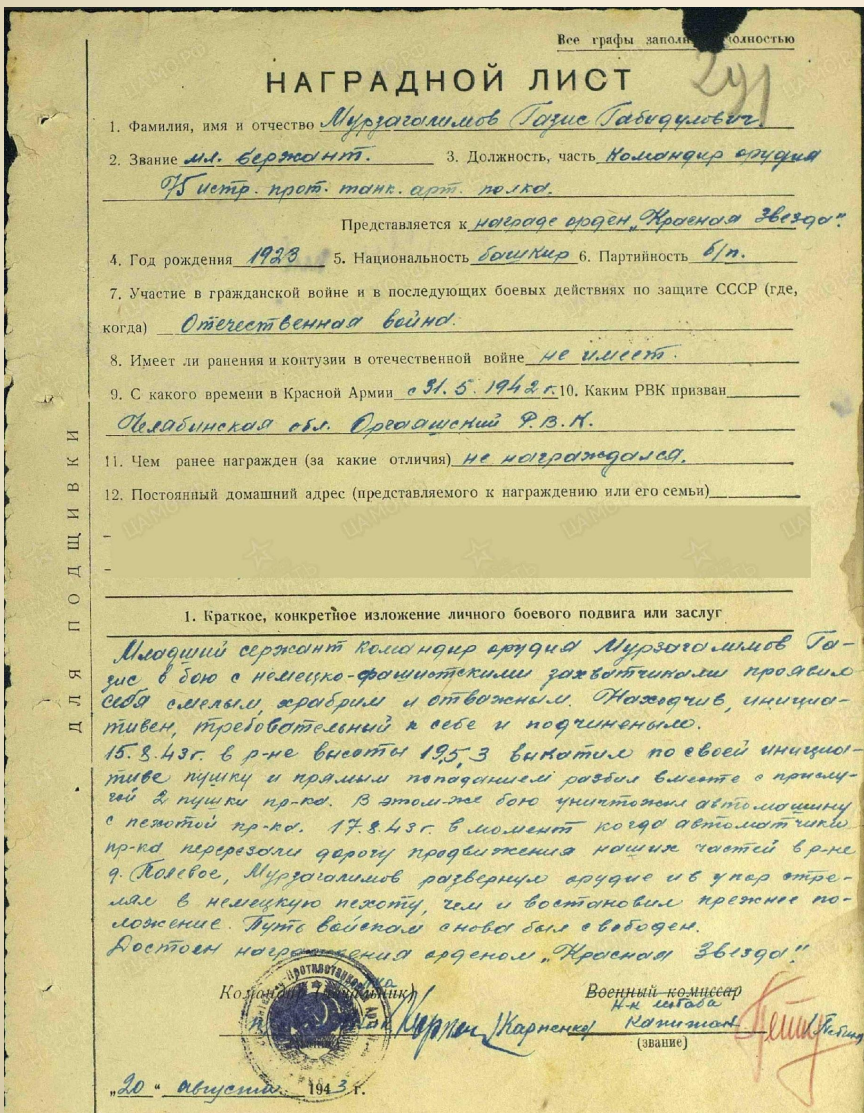 Все графы заполн полностью
291
НАГРАДНОЙ ЛИСТ
1. Фамилия, имя и отчество Мурзагалимов Газис Габидулович
2. Звание мл. сержант. 3. Должность, часть Командир орудия
75 истр. прот. танк. арт. полка.
Представляется к награде орден „Красная Звезда".
4. Год рождения 1923 5. Национальность башкир 6. Партийность б/п.
7. Участие в гражданской войне и в последующих боевых действиях по защите СССР (где,
когда) Отечественная война.
8. Имеет ли ранения и контузии в отечественной войне не имеет.
9. С какого времени в Красной Армии с 31.5.1942 г. 10. Каким РВК призван
Челябинская обл. Аргаяшский Р.В.К.
11. Чем ранее награжден (за какие отличия) не награждался.
12. Постоянный домашний адрес (представляемого к награждению или его семьи)
ДЛЯ ПОДШИВКИ
1. Краткое, конкретное изложение личного боевого подвига или заслуг
Младший сержант командир орудия Мурзагалимов Га-
зис в бою с немецко-фашистскими захватчиками проявил
себя смелым, храбрим и отважным. Находчив, инициа-
тивен, требовательный к себе и подчиненым.
15.8.43г. в р-не высоты 195,3 выкатил по своей инициа-
тиве пушку и прямым попаданием разбил вместе с прислу-
гой 2 пушки пр-ка. В этом-же бою уничтожил автомашину
с пехотой пр-ка. 17.8.43г. в момент когда автоматчики
пр-ка перерезали дорогу продвижения наших частей в р-не
д. Полевое, Мурзагалимов развернул орудие и в упор стре-
лял в немецкую пехоту, чем и востановил прежнее по-
ложение. Путь войскам снова был свободен.
Достоен награждения орденом „Красная Звезда".
Командир (начальник) Военный комиссар
н-к штаба
(Карпенко) капитан
(звание)
„20" августа 1943 г.